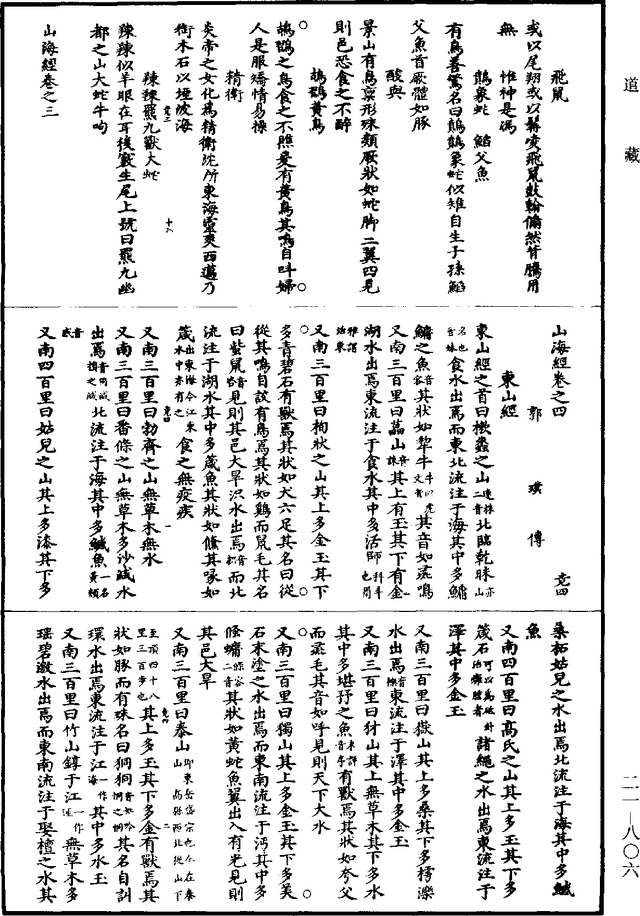 道藏
飛鼠
或以尾翔或以髯凌飛鼠鼓翰翛然背騰用
無　惟神是馮
鷾象蛇　鮥父魚
有鳥善驚名曰鷾鷾象蛇似雉自生子孫鮥
父魚首厥體如豚
酸與
景山有鳥稟形殊類厥狀如蛇脚二翼四見
則邑恐食之不醉
鴣鸐黃鳥
鴣鸐之鳥食之不瞧爰有黃鳥其鳴自叫婦
人是服矯情易操
精衛
炎帝之女化為精衛沉所東海靈爽西邁乃
銜木石以堙波海
竟三　十六
辣辣羆九獸大蛇
辣辣似羊眼在耳後竅生尾上號曰羆九幽
都之山大蛇牛呴
山海經卷之三
山海經卷之四　竟四
郭璞傳
東山經
東山經之首曰樕𧑤之山速株二音北臨乾昧亦山名也音妹食水出焉而東北流注于海其中多鱅
鱅之魚音容其狀如犂牛牛似虎文者其音如彘鳴
又南三百里曰藟山音誄其上有玉其下有金
湖水出焉東流注于食水其中多活師科斗也爾雅謂活東
又南三百里曰栒狀之山其上多金玉其下
多青碧石有獸焉其狀如犬六足其名曰從
從其鳴自詨有鳥焉其狀如鷄而鼠毛其名
曰蚩鼠音咨見則其邑大旱𣲵水出焉音枳而北
流注于湖水其中多箴魚其狀如儵其喙如
箴出東海今江東水中亦有之食之無疫疾
竟四　一
又南三百里曰勃齊之山無草木無水
又南三百里曰番條之山無草木多沙減水
出焉音同減損之減北流注于海其中多鱤魚一名黃頰音感
又南四百里曰姑兒之山其上多漆其下多
桑柘姑兒之水出焉北流注于海其中多鱤
魚
又南四百里曰高氏之山其上多玉其下多
箴石可以為砥針治癰腫者諸繩之水出焉東流注于
澤其中多金玉
又南三百里曰嶽山其上多桑其下多樗濼
水出焉音樂東流注于澤其中多金玉
又南三百里曰犲山其上無草木其下多水
其中多堪㐨之魚未詳音序有獸焉其狀如夸父
而彘毛其音如呼見則天下大水
又南三百里曰獨山其上多金玉其下多美
石末塗之水出焉而東南流注于沔其中多
偹䗤條容二音其狀如黃蛇魚翼出入有光見則
其邑大旱
又南三百里曰泰山即東岳岱宗也今在泰山奉高縣西北從山下至頂四十八里三百步也其上多玉其下多金有獸焉其
竟四　二
狀如豚而有珠名曰狪狪音如吟恫之恫其名自訓
環水出焉東流注于江一作海其中多水玉
又南三百里曰竹山錞于江一作涯無草木多
瑶碧激水出焉而東南流注于娶檀之水其
二一—八〇六